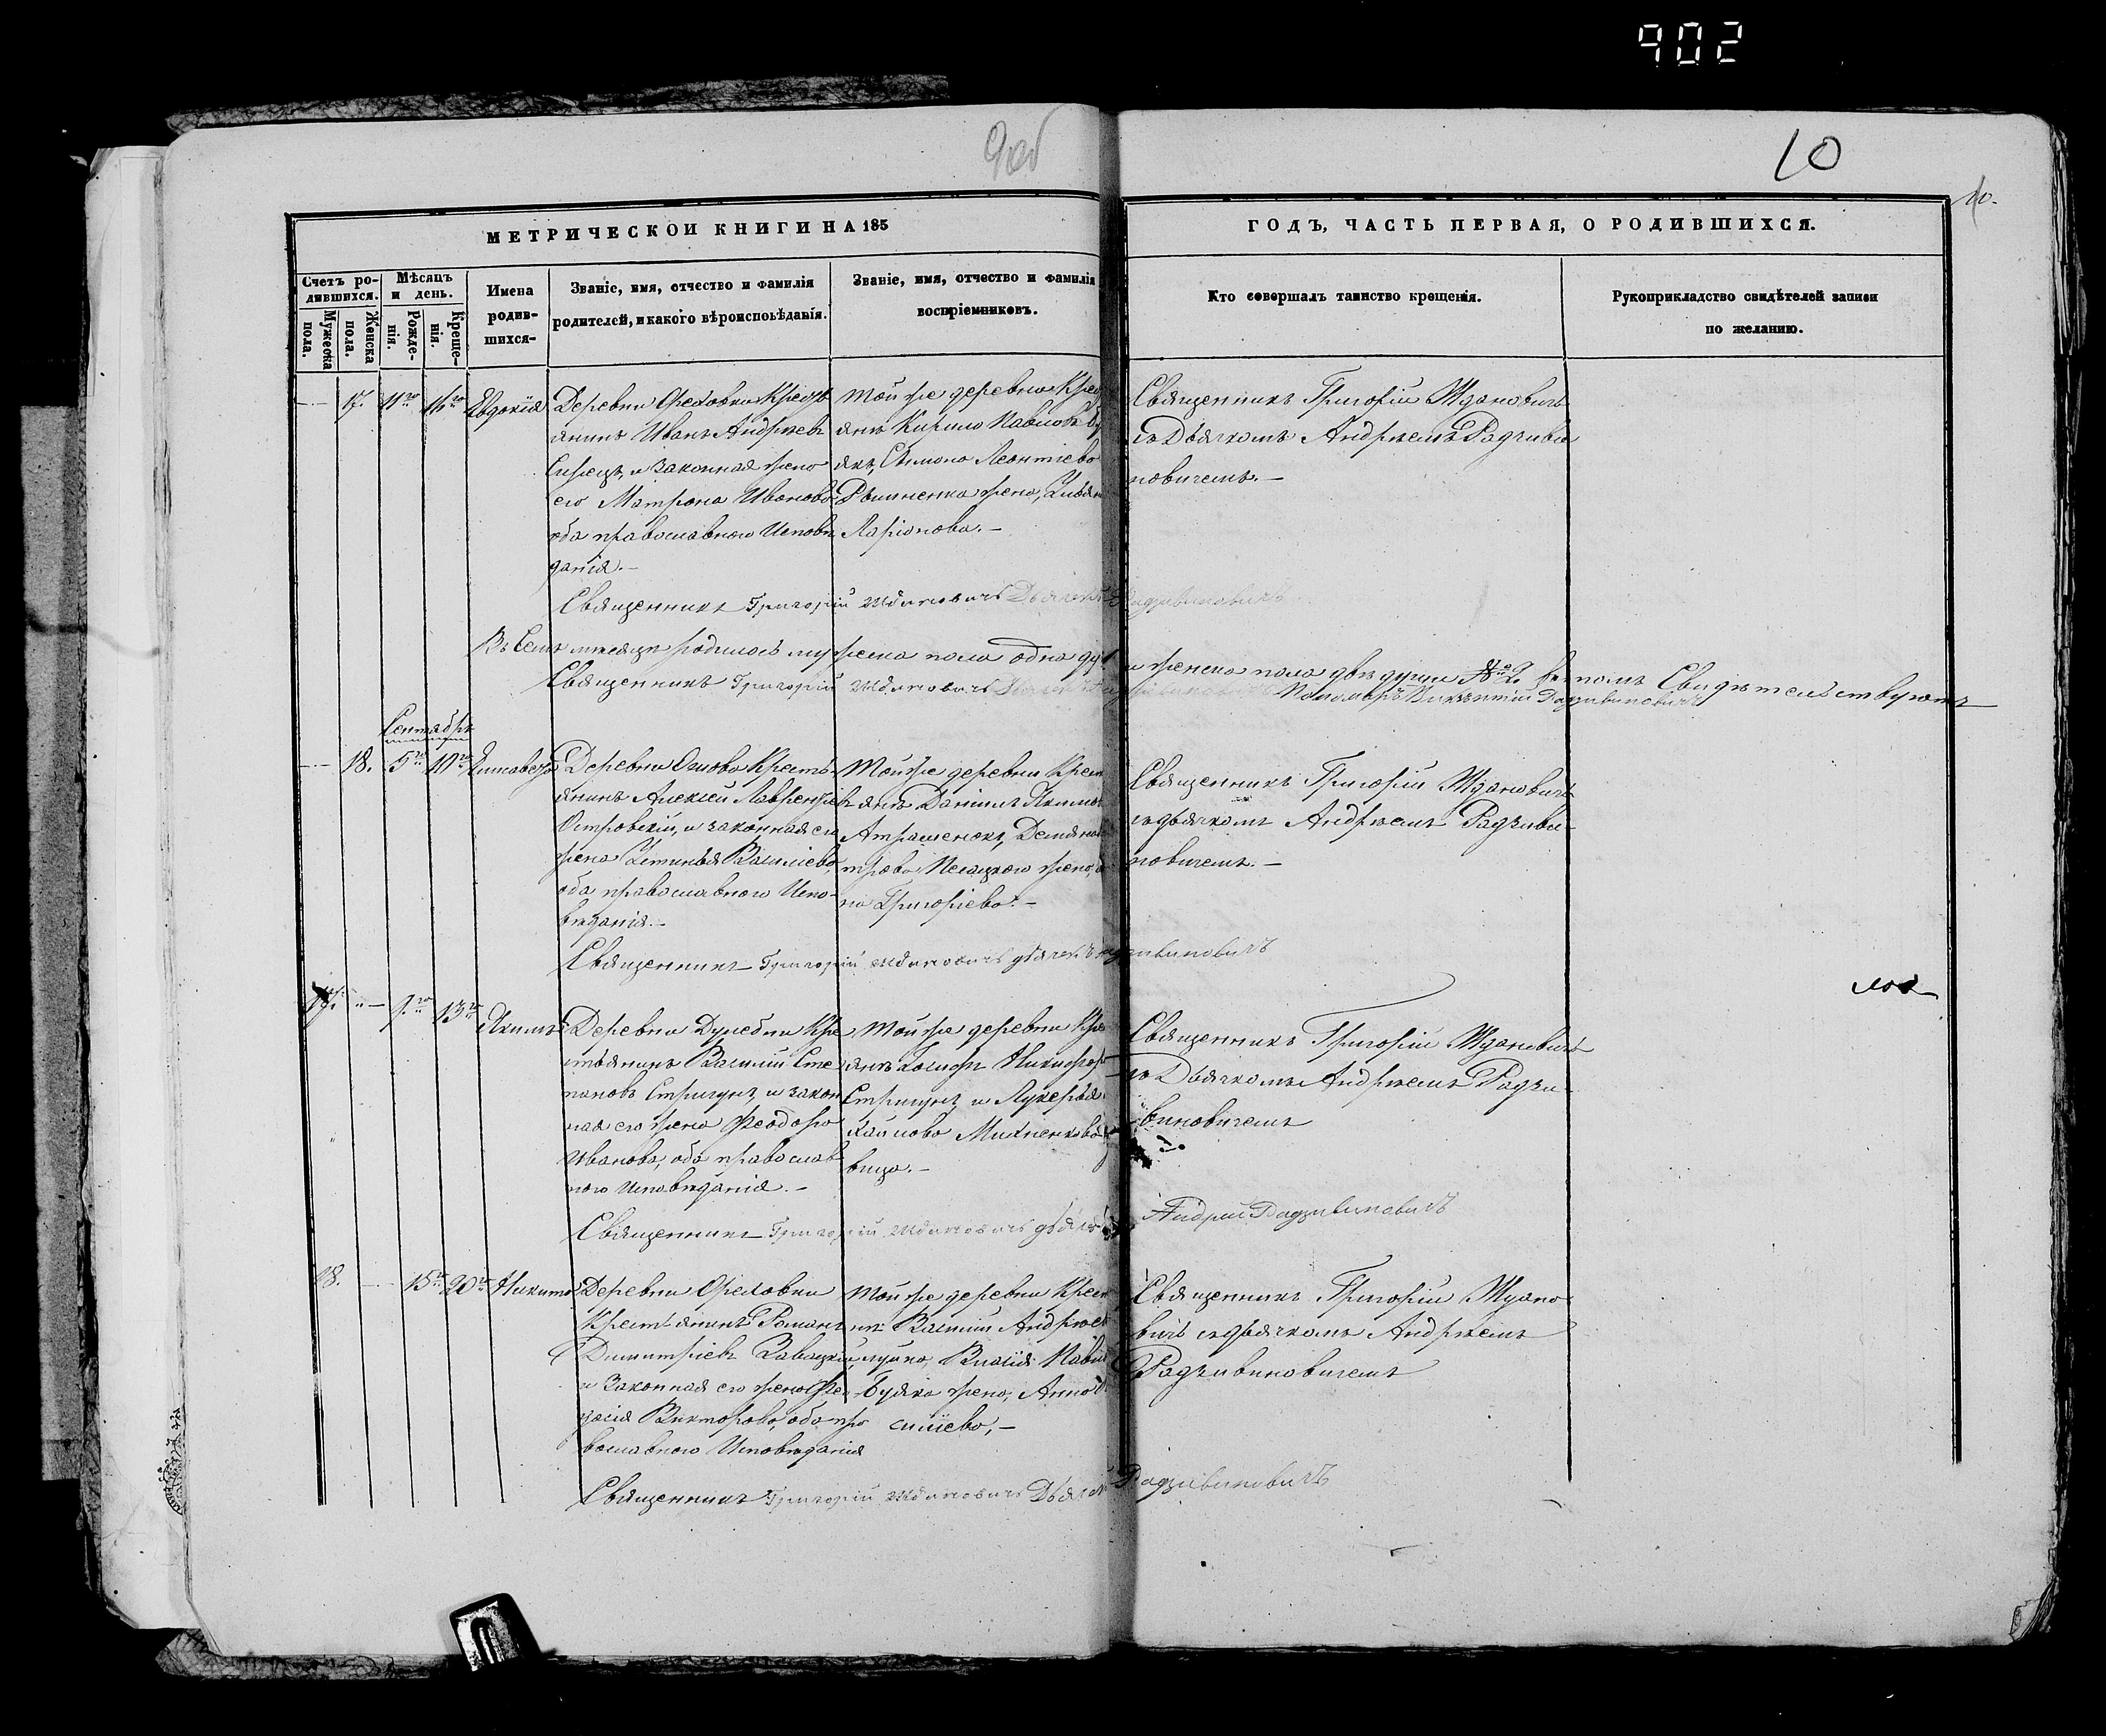 902
9об
10
10.
МЕТРИЧЕСКОЙ КНИГИ НА 185
ГОДЪ, ЧАСТЬ ПЕРВАЯ, О РОДИВШИХСЯ.
Счетъ ро-
дившихся.
Мужеска
пола.
Женска
пола.
Мѣсяцъ
и день.
Рожде-
нія.
Креще-
нія.
Имена
родив-
шихся-
Званіе, имя, отчество и фамилія
родителей, и какого вѣроисповѣданія.
Званіе, имя, отчество и фамилія
воспріемниковъ.
Кто совершалъ таинство крещенія.
Рукоприкладство свидѣтелей записи
по желанію.
17. 11го 16го Евдокія
Деревни Ореховки Кресть
янинъ Иванъ Андреевъ
и законная жена
его Матрона Иванова
оба православнаго Исповѣ
данія.-
Той же деревни Крес
янъ Кирило Павловъ
якъ, Симона Леонтіева
жена,
Ларіонова.-
Священникъ Григорій Ждановичъ
съ Дьячкомъ Андреемъ Радзиви
новичемъ.-
Священникъ Григорій Ждановичъ Дьячекъ Радзивиновичъ
Въ Семъ месяце родилось мужеска пола одна ду и женска пола две души № 2. въ томъ Свидетельствуютъ
Священникъ Григорій Ждановичъ
Пономарь Викентій Радзивиновичъ
Сентябрь
18. 5го 10го Елисавета
Деревни Осиова Кресть-
янинъ Алексей Лаврентіевъ
Островскій, и законная его
жена Устинья Васильева,
оба православнаго Испо-
веданія.-
Той же деревни Крест
янъ Даніилъ Якимовъ
Атрашенокъ,
жена,
на Григоріева.-
Священникъ Григорій Ждановичъ
съ дьячкомъ Андреемъ Радзиви
новичемъ.-
Священникъ Григорій Ждановичъ дьячекъ Радзивиновичъ
17. 9го 13го Якимъ
Деревни Дулебни Кре
стьянинъ Василій Сте
пановъ Стригунъ, и закон
ная его жена Феодора
Иванова, оба православ
наго Исповеданія.-
Той же деревни Кре
янъ Іосифъ Никифоро
Стригунъ, и Лукерья
хайлова Михненкова
вица.-
Священникъ Григорій Ждановичъ
съ Дьячкомъ Андреемъ Радзи
виновичемъ
Священникъ Григорій Ждановичъ дьячекъ Андрей Радзивиновичъ
18. 15го 20го Никита
Деревни Ореховки
Крестьянинъ Романъ
Димитріевъ Завацкій
и Законная его жена Фео
досія Викторова, оба пра
вославнаго Исповеданія
Той же деревни Крест
нъ Василій Андреев
Павл
Буяка жена, Анна
силіева,-
Священникъ Григорій Ждано
вичъ съ дьячкомъ Андреемъ
Радзивиновичемъ
Священникъ Григорій Ждановичъ Дьячекъ Радзивиновичъ